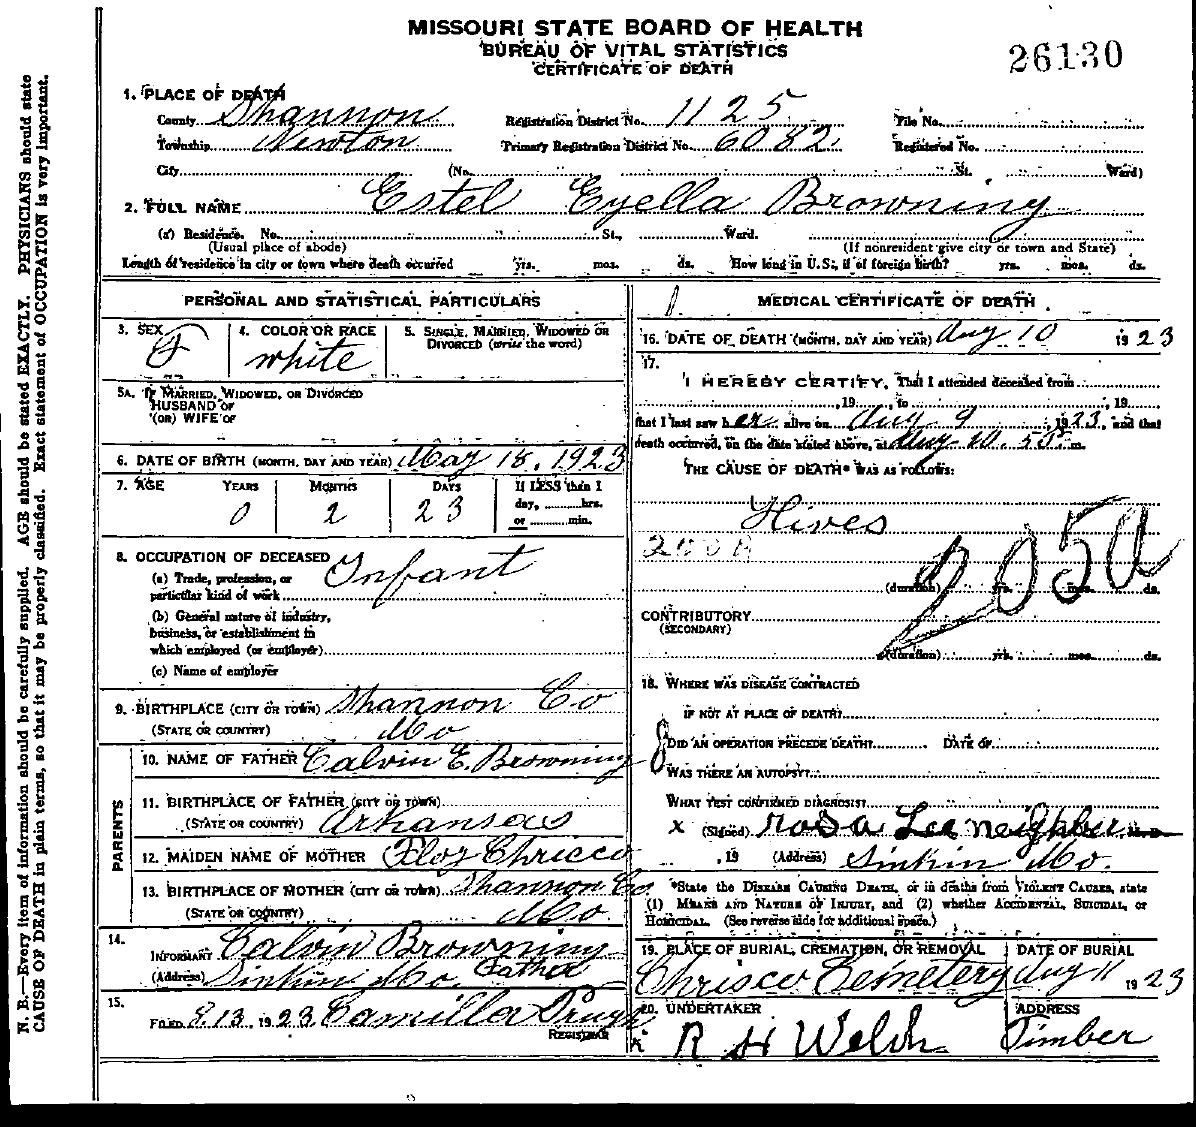 MISSOURI STATE BOARD OF HEALTH
BUREAU OF VITAL STATISTICS
CERTIFICATE OF DEATH
26130
1. PLACE OF DEATH
County Shannon Registration District No. 1125 File No.
Township Newton Primary Registration District No. 6082 Registered No.
City (No. St. Ward)
2. FULL NAME Estel Eyella Browning
(a) Residence. No. St., Ward.
(Usual place of abode) (If nonresident give city or town and State)
Length of residence in city or town where death occurred yrs. mos. ds. How long in U.S., if of foreign birth? yrs. mos. ds.
PERSONAL AND STATISTICAL PARTICULARS
3. SEX 4. COLOR OR RACE 5. SINGLE, MARRIED, WIDOWED OR
DIVORCED (write the word)
F white
5A. IF MARRIED, WIDOWED, OR DIVORCED
HUSBAND OF
(OR) WIFE OF
6. DATE OF BIRTH (MONTH, DAY AND YEAR) May 18, 1923
7. AGE YEARS MONTHS DAYS If LESS than 1
day, hrs.
or min.
0 2 23
8. OCCUPATION OF DECEASED Infant
(a) Trade, profession, or
particular kind of work
(b) General nature of industry,
business, or establishment in
which employed (or employer)
(c) Name of employer
9. BIRTHPLACE (CITY OR TOWN) Shannon Co
(STATE OR COUNTRY) Mo
PARENTS
10. NAME OF FATHER Calvin E. Browning
11. BIRTHPLACE OF FATHER (CITY OR TOWN)
(STATE OR COUNTRY) Arkansas
12. MAIDEN NAME OF MOTHER Chricco
13. BIRTHPLACE OF MOTHER (CITY OR TOWN) Shannon Co.
(STATE OR COUNTRY) Mo
14.
INFORMANT Calvin Browning
(Address) Sinkin Mo. Father
15.
FILED 8.13, 1923 Camilla
REGISTRAR
MEDICAL CERTIFICATE OF DEATH
16. DATE OF DEATH (MONTH, DAY AND YEAR) Aug 10 1923
17.
I HEREBY CERTIFY, That I attended deceased from
, 19 , to , 19
that I last saw her alive on Aug 9, 1923, and that
death occurred, on the date stated above, at Aug 10. m.
THE CAUSE OF DEATH* WAS AS FOLLOWS:
Hives
205a
(duration) yrs. mos. ds.
CONTRIBUTORY
(SECONDARY)
(duration) yrs. mos. ds.
18. WHERE WAS DISEASE CONTRACTED
IF NOT AT PLACE OF DEATH?
DID AN OPERATION PRECEDE DEATH? DATE OF
WAS THERE AN AUTOPSY?
WHAT TEST CONFIRMED DIAGNOSIS?
x (Signed) rosa Lee neighber M. D.
, 19 (Address) Sinkin Mo.
*State the DISEASE CAUSING DEATH, or in deaths from VIOLENT CAUSES, state
(1) MEANS AND NATURE OF INJURY, and (2) whether ACCIDENTAL, SUICIDAL, or
HOMICIDAL. (See reverse side for additional space.)
19. PLACE OF BURIAL, CREMATION, OR REMOVAL DATE OF BURIAL
Chrisco Cemetery Aug 11 1923
20. UNDERTAKER ADDRESS
x R H Welch Timber
N. B.—Every item of information should be carefully supplied. AGE should be stated EXACTLY. PHYSICIANS should state
CAUSE OF DEATH in plain terms, so that it may be properly classified. Exact statement of OCCUPATION is very important.